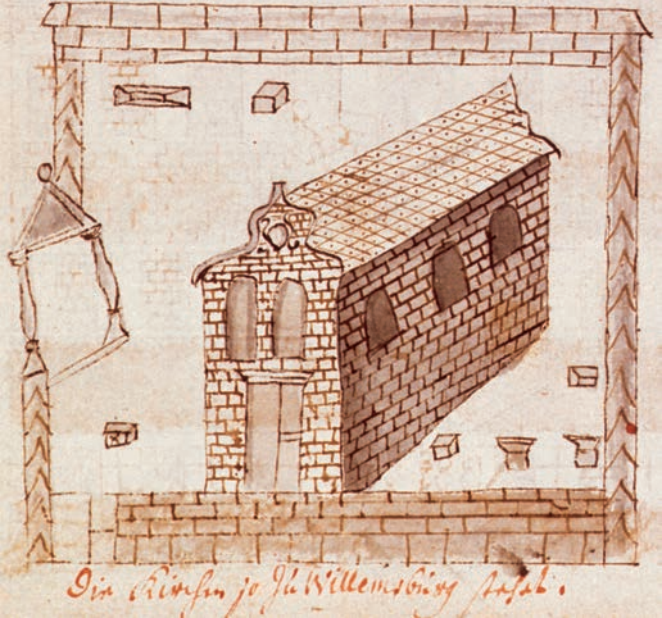 Die Kirchen so zu Willemsburg stehet.